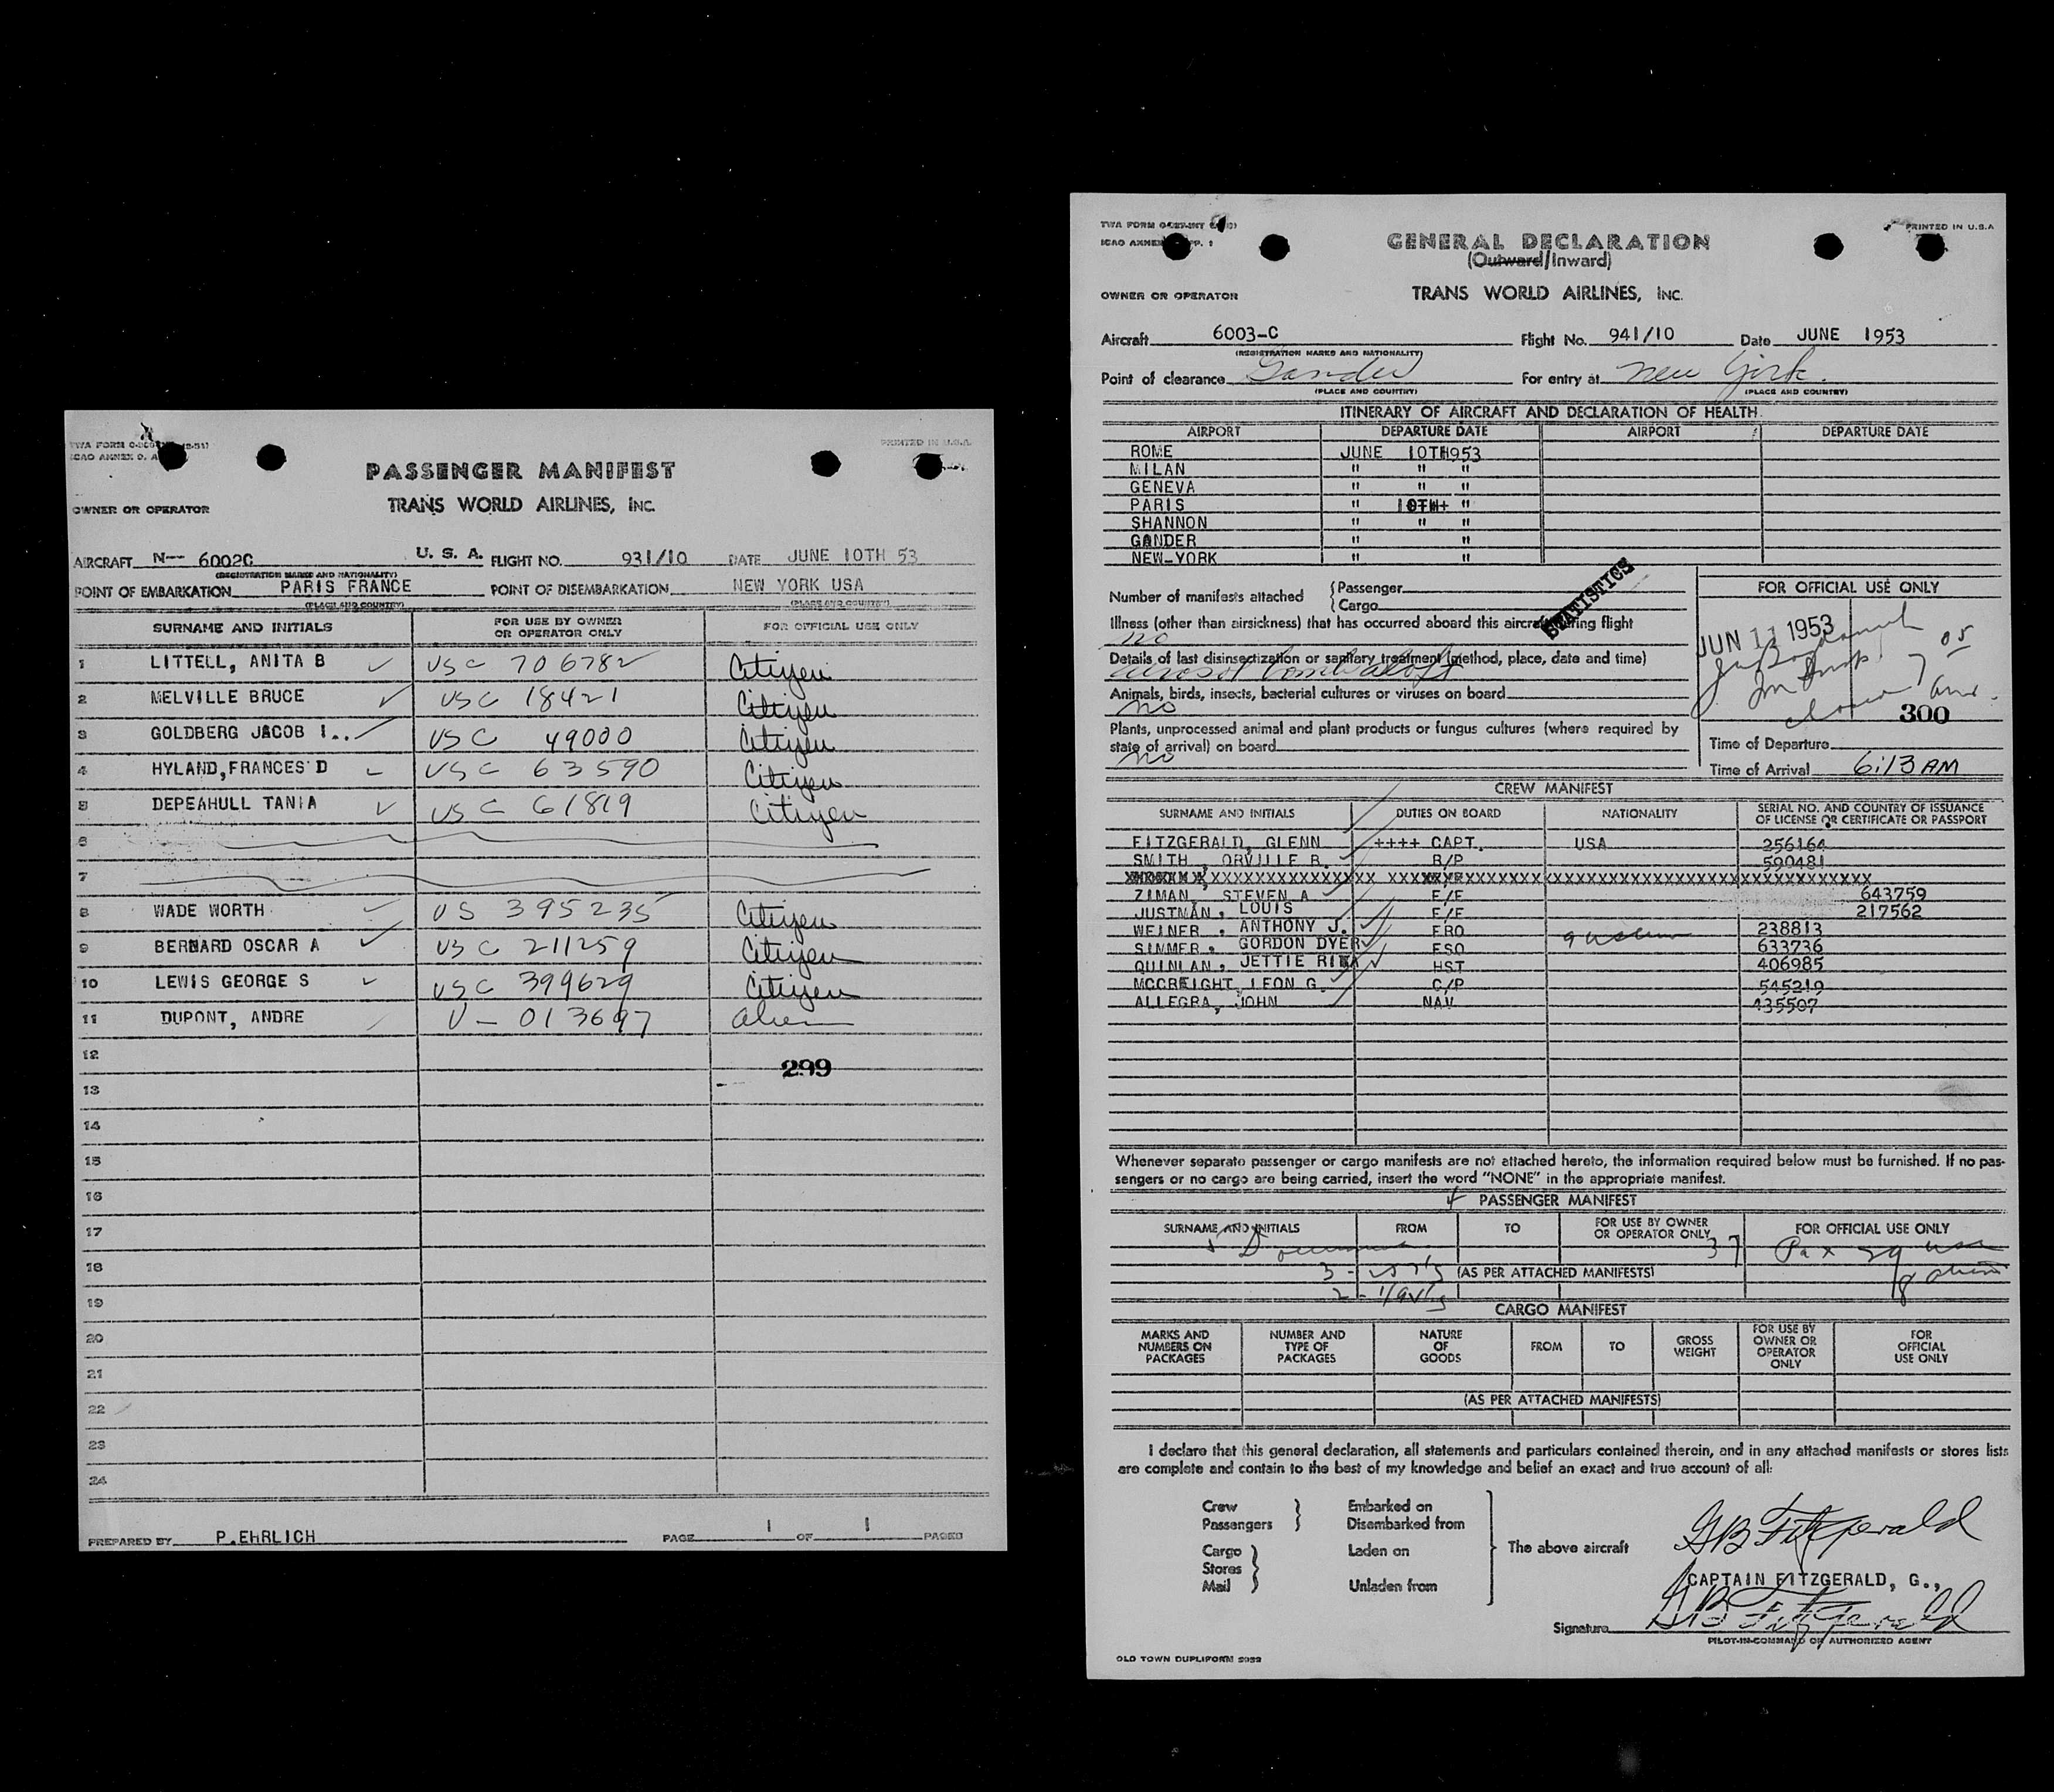 TWA FORM
ICAO ANNEX 9, A
PRINTED IN U.S.A.
PASSENGER MANIFEST
OWNER OR OPERATOR TRANS WORLD AIRLINES, INC.
AIRCRAFT N-- 6002C U. S. A. FLIGHT NO. 931/10 DATE JUNE 10TH 53
(REGISTRATION MARKS AND NATIONALITY)
POINT OF EMBARKATION PARIS FRANCE POINT OF DISEMBARKATION NEW YORK USA
(PLACE AND COUNTRY) (PLACE AND COUNTRY)
SURNAME AND INITIALS FOR USE BY OWNER OR OPERATOR ONLY FOR OFFICIAL USE ONLY
1 LITTELL, ANITA B USC 706782 Citizen
2 MELVILLE BRUCE USC 18421 Citizen
3 GOLDBERG JACOB I.. USC 49000 Citizen
4 HYLAND,FRANCES D USC 63590 Citizen
5 DEPEAHULL TANIA USC 61819 Citizen
6
7
8 WADE WORTH US 395235 Citizen
9 BERNARD OSCAR A USC 211259 Citizen
10 LEWIS GEORGE S USC 399629 Citizen
11 DUPONT, ANDRE V- 013697 alien
12
299
13
14
15
16
17
18
19
20
21
22
23
24
PREPARED BY P.EHRLICH PAGE 1 OF 1 PAGES
TWA FORM
ICAO ANNEX PP. 1
PRINTED IN U.S.A
GENERAL DECLARATION
(Outward/Inward)
OWNER OR OPERATOR TRANS WORLD AIRLINES, INC.
Aircraft 6003-C Flight No. 941/10 Date JUNE 1953
(REGISTRATION MARKS AND NATIONALITY)
Point of clearance Gander For entry at New York.
(PLACE AND COUNTRY) (PLACE AND COUNTRY)
ITINERARY OF AIRCRAFT AND DECLARATION OF HEALTH
AIRPORT DEPARTURE DATE AIRPORT DEPARTURE DATE
ROME JUNE 10TH953
MILAN " " "
GENEVA " " "
PARIS " 10TH+ "
SHANNON " " "
GANDER " "
NEW-YORK " "
Number of manifests attached {Passenger
{Cargo
STATISTICS
Illness (other than airsickness) that has occurred aboard this aircraft during flight
no
Details of last disinsectization or sanitary treatment (method, place, date and time)
aerosol bomb aloft
Animals, birds, insects, bacterial cultures or viruses on board
no
Plants, unprocessed animal and plant products or fungus cultures (where required by
state of arrival) on board
no
FOR OFFICIAL USE ONLY
JUN 11 1953
7 05
300
Time of Departure
Time of Arrival 6:13 AM
CREW MANIFEST
SURNAME AND INITIALS DUTIES ON BOARD NATIONALITY SERIAL NO. AND COUNTRY OF ISSUANCE OF LICENSE OR CERTIFICATE OR PASSPORT
FITZGERALD, GLENN ++++ CAPT. USA 256164
SMITH , ORVILLE R. R/P 590481
ZIMAN, STEVEN A F/E 643759
JUSTMAN, LOUIS F/E 217562
WEINER , ANTHONY J. FRO 238813
SIMMER, GORDON DYER FSO 633736
QUINLAN, JETTIE RITA HST 406985
MCCREIGHT, LEON G. C/P 545219
ALLEGRA, JOHN NAV 435507
Whenever separate passenger or cargo manifests are not attached hereto, the information required below must be furnished. If no pas-
sengers or no cargo are being carried, insert the word "NONE" in the appropriate manifest.
PASSENGER MANIFEST
SURNAME AND INITIALS FROM TO FOR USE BY OWNER OR OPERATOR ONLY FOR OFFICIAL USE ONLY
37 Pax 29
3-
(AS PER ATTACHED MANIFESTS)
8 alien
2-
CARGO MANIFEST
MARKS AND NUMBERS ON PACKAGES NUMBER AND TYPE OF PACKAGES NATURE OF GOODS FROM TO GROSS WEIGHT FOR USE BY OWNER OR OPERATOR ONLY FOR OFFICIAL USE ONLY
(AS PER ATTACHED MANIFESTS)
I declare that this general declaration, all statements and particulars contained therein, and in any attached manifests or stores lists
are complete and contain to the best of my knowledge and belief an exact and true account of all:
Crew Embarked on
Passengers Disembarked from
Cargo Laden on
Stores
Mail Unladen from
The above aircraft
GB Fitzgerald
CAPTAIN FITZGERALD, G.,
Signature GB Fitzgerald
PILOT-IN-COMMAND OR AUTHORIZED AGENT
OLD TOWN DUPLIFORM